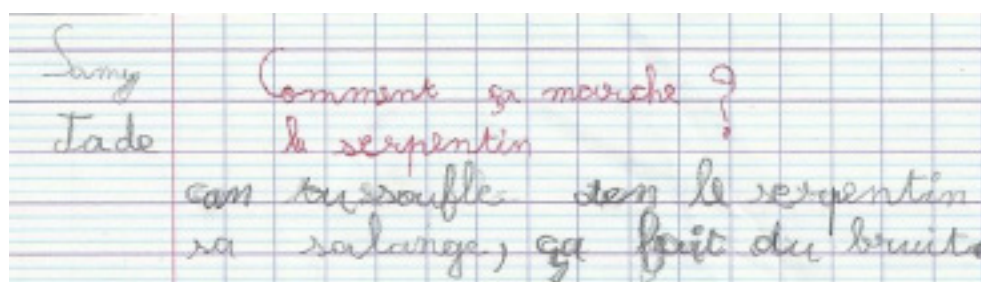 Samy
Comment ça marche ?
Jade
le serpentin
can tu soufle den le serpentin
sa salange, ça fait du bruit